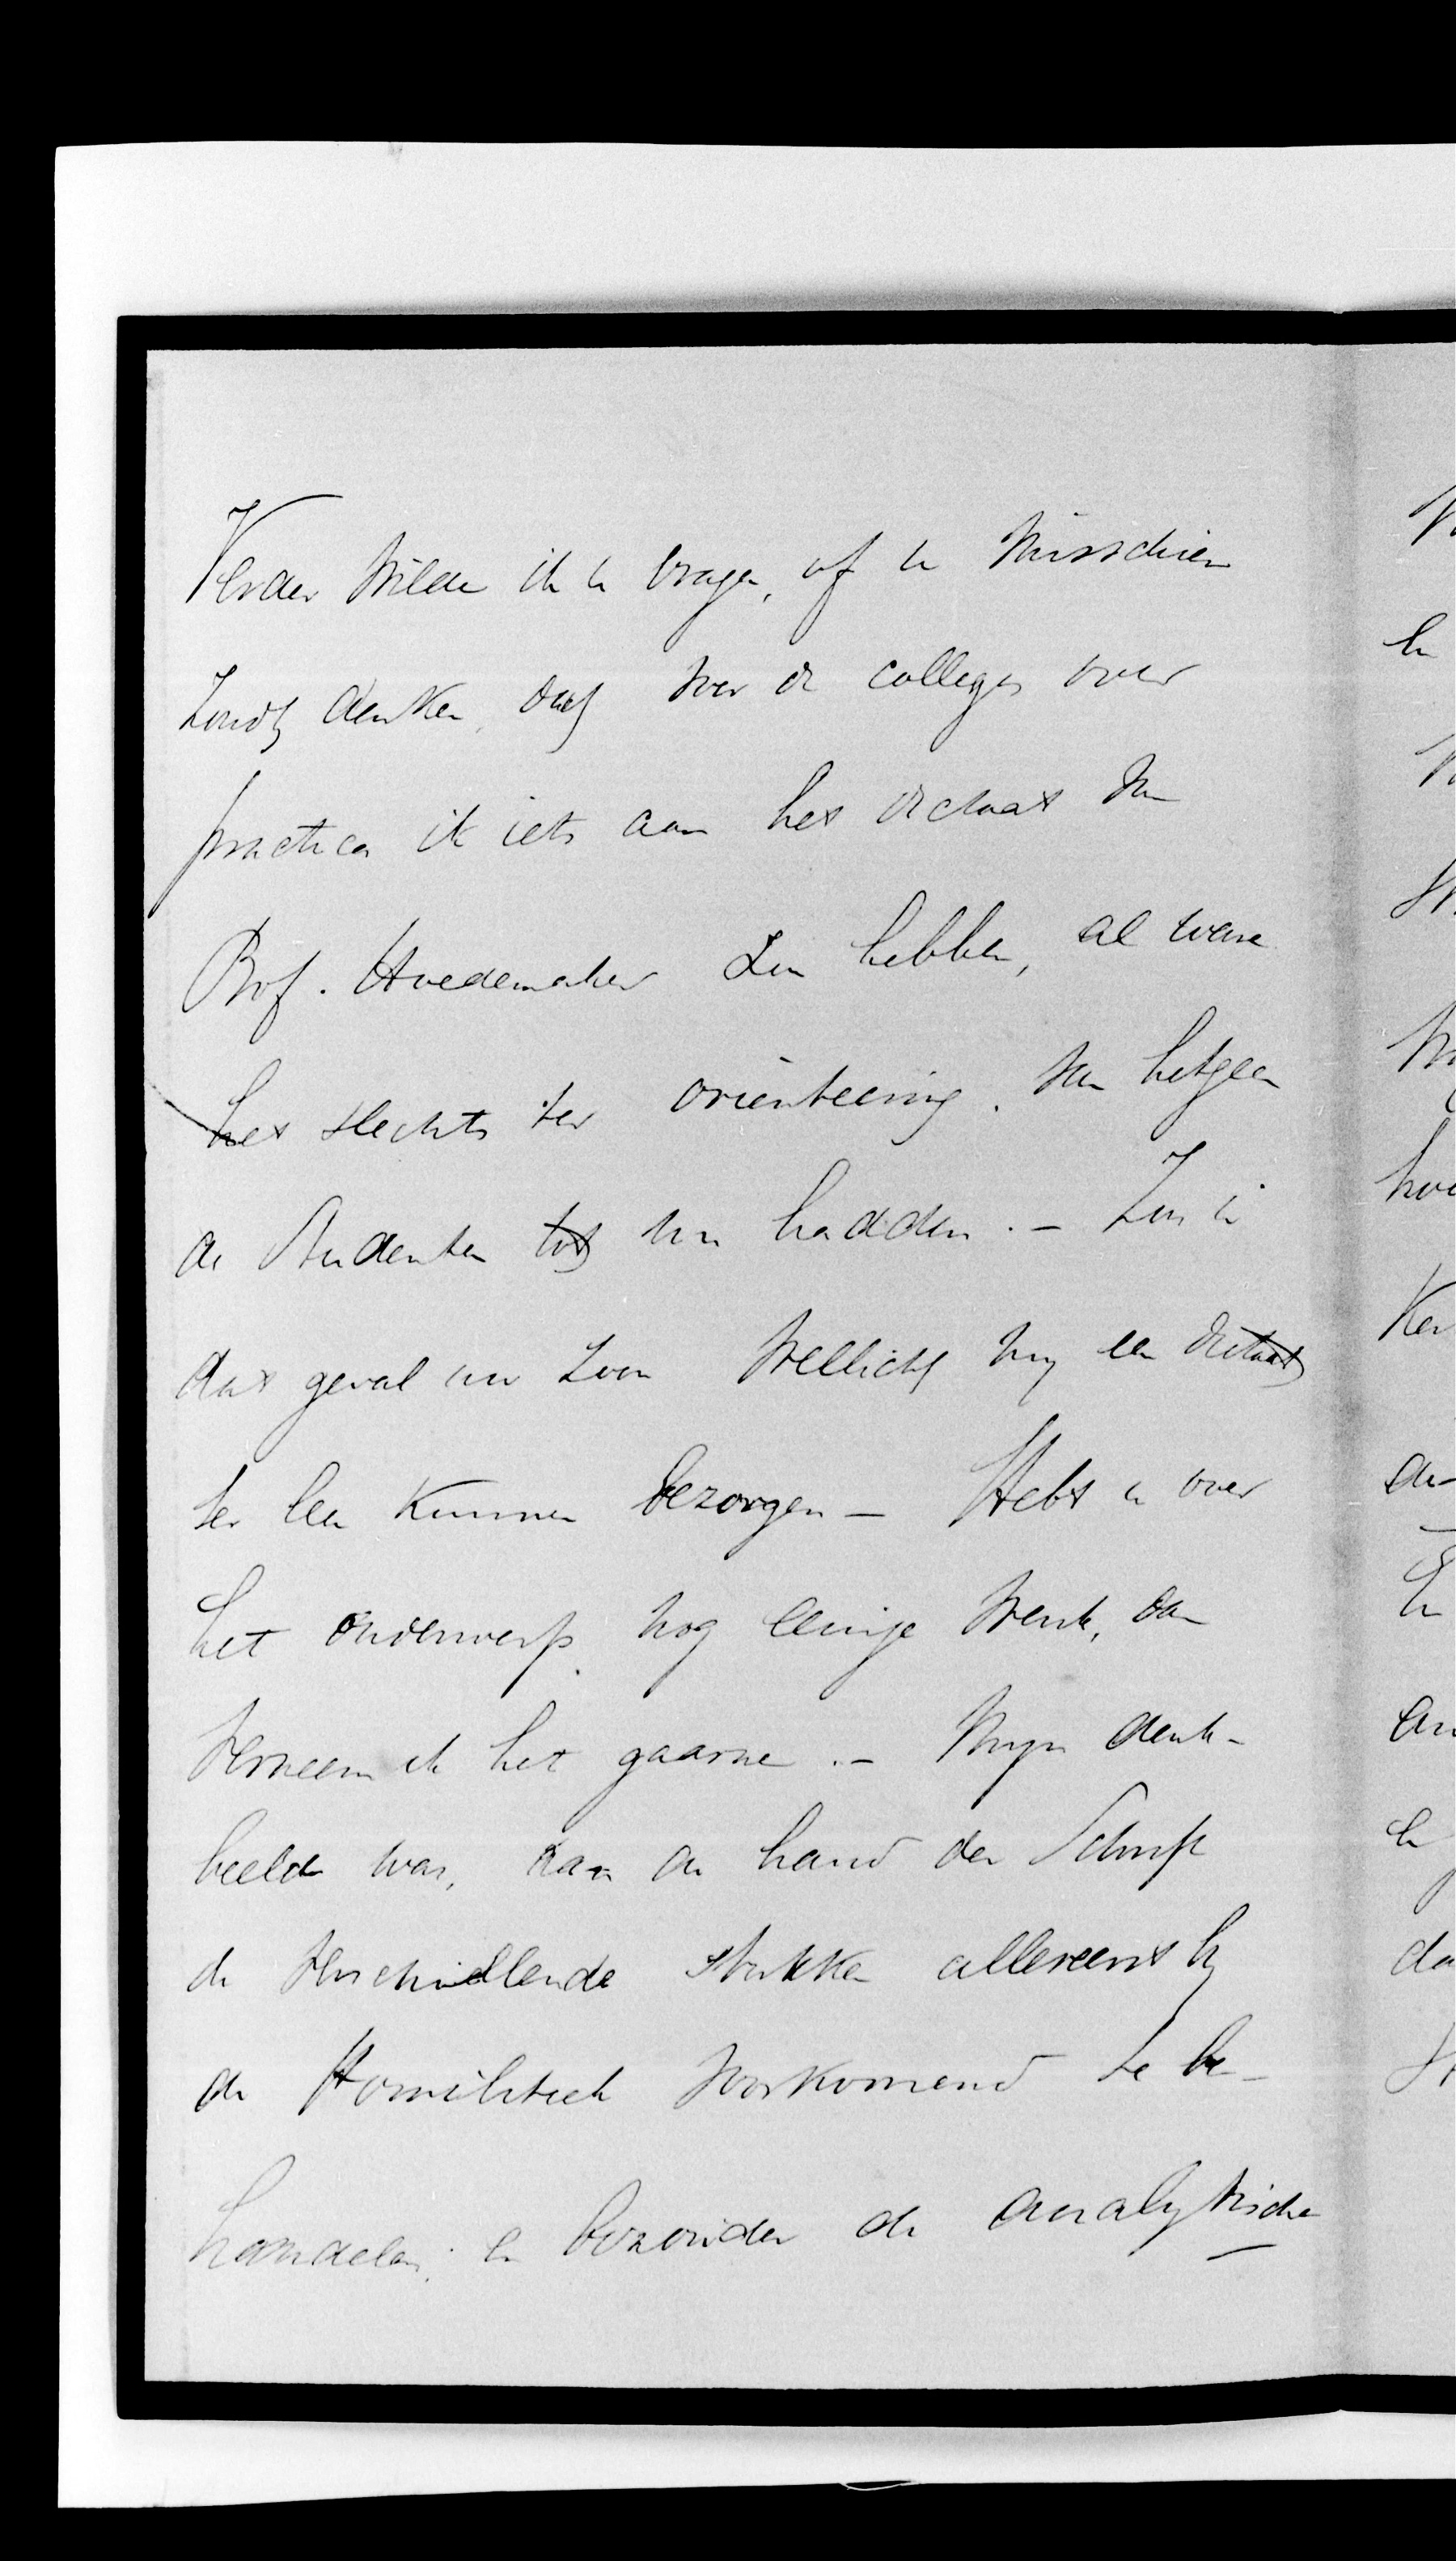 Verder wilde ik u vragen, of u misschien
zoudt denken, dat voor de colleges over
practica ik iets aan het dictaat van
Prof. Hoedemaker zou hebben, al ware
het slechts ter oriënteering van hetgeen
de studenten tot nu hadden. - Zou in
dat geval uw zoon wellicht mij een dictaat
ter leen kunnen bezorgen - Hebt u over
het onderwerp nog eenige wenk, dan
verneem ik het gaarne. - Mijn denk-
beeld was, aan de hand der Schrift
de verschillende stukken allereerst bij
de Homiletiek voorkomend te be-
handelen, in bizonder de analytische